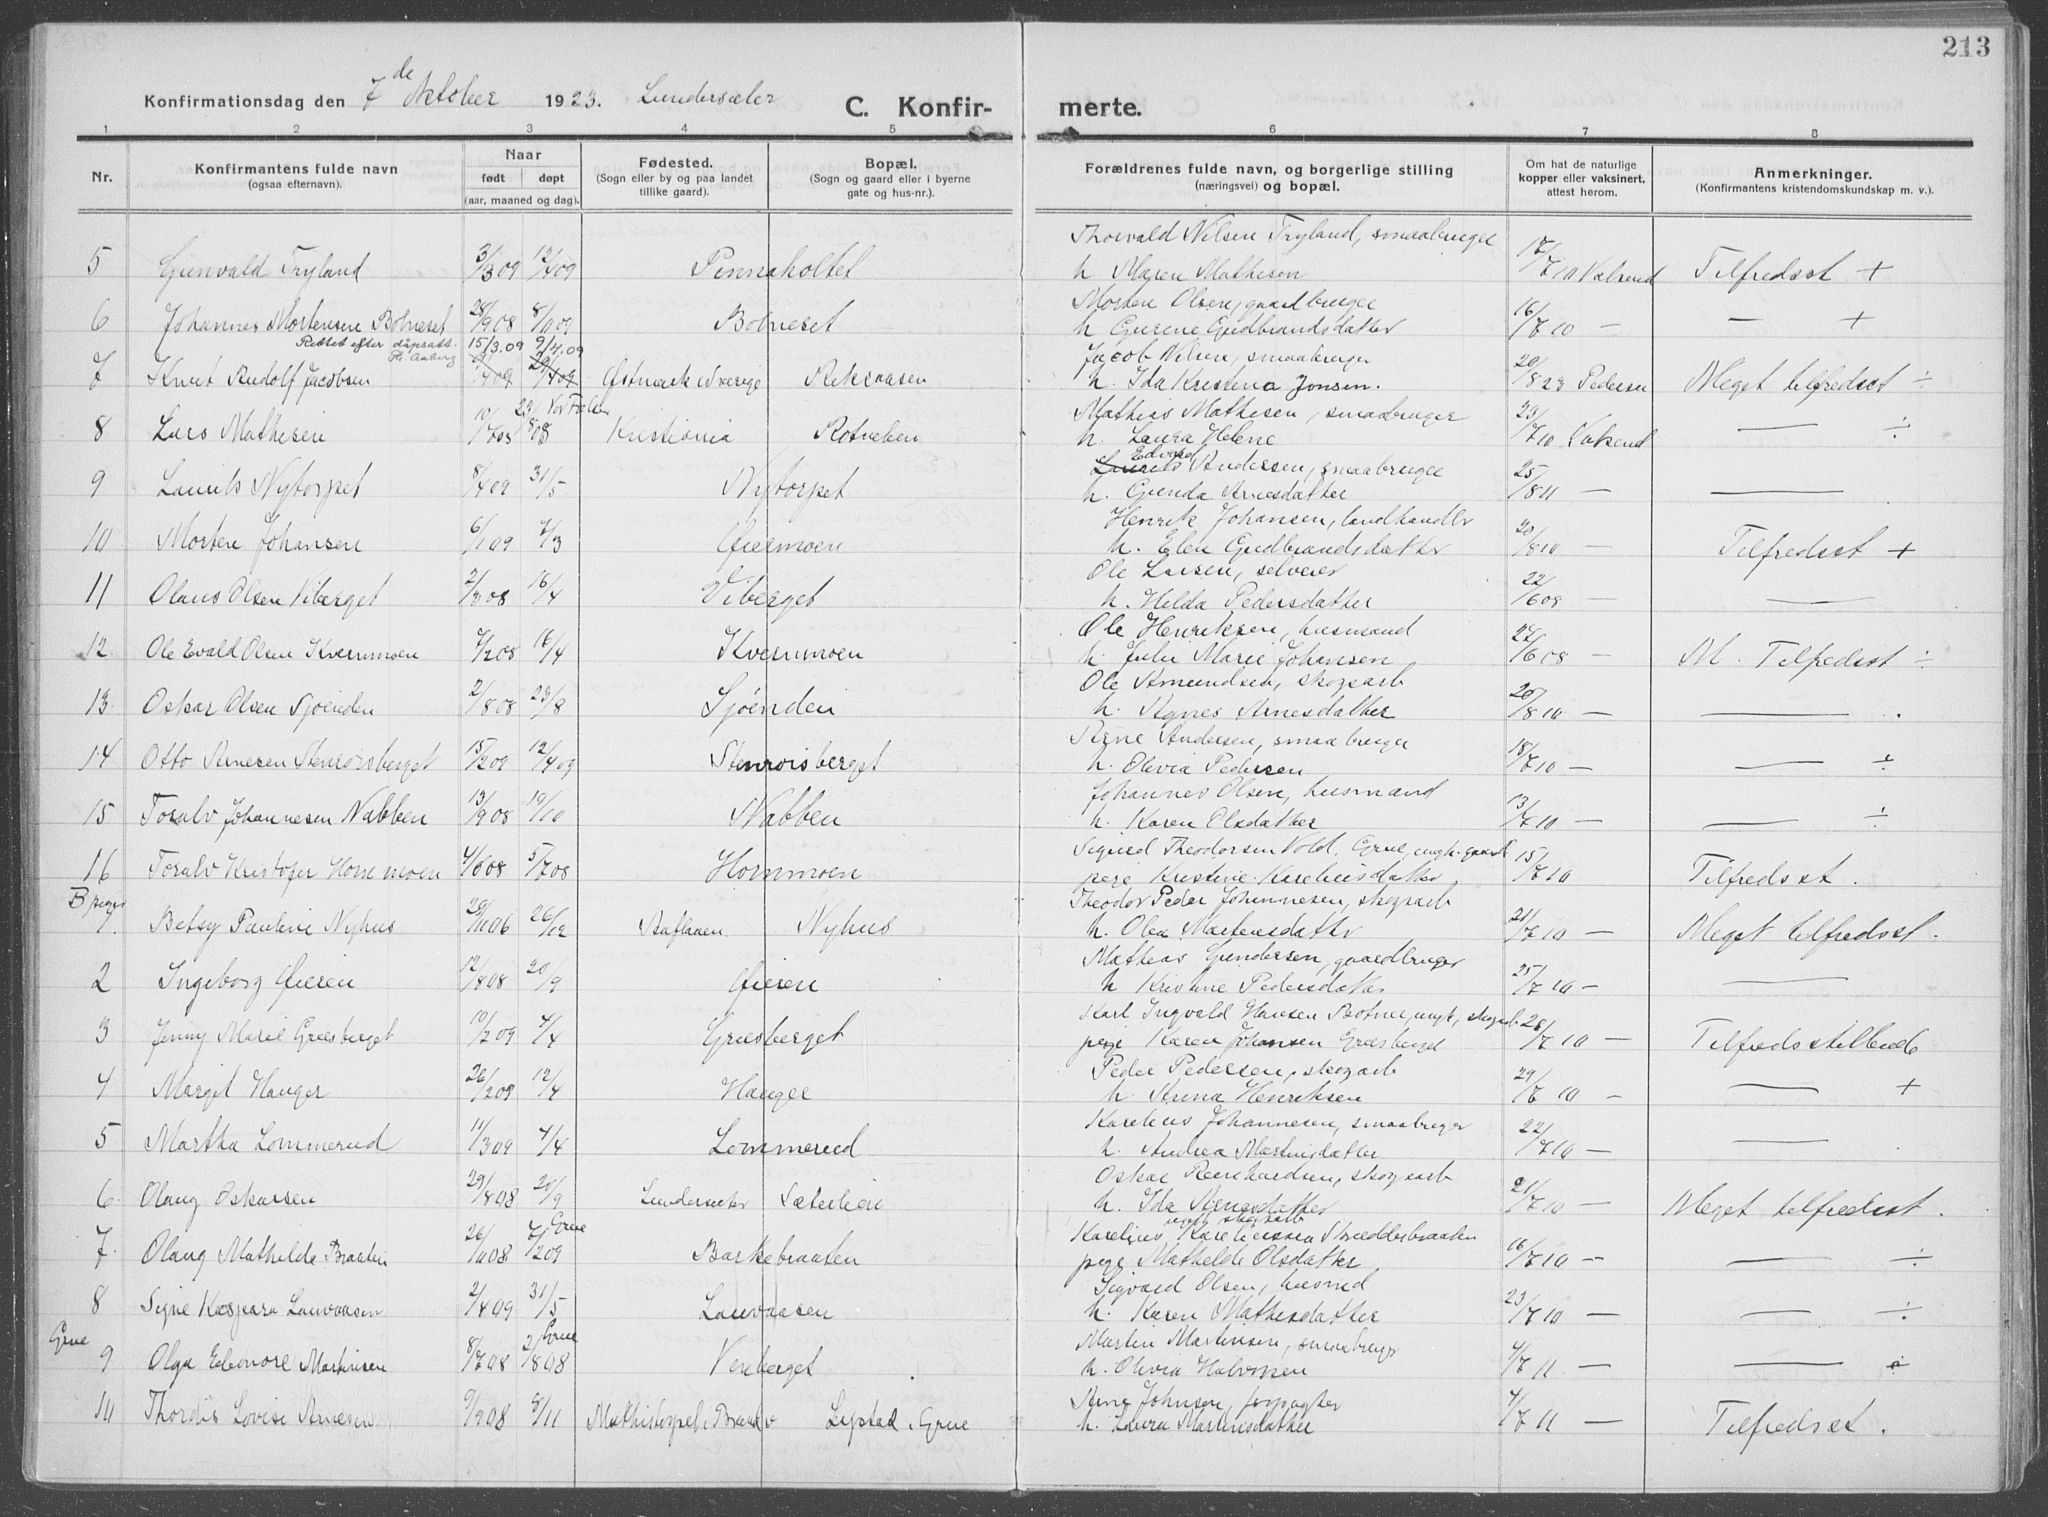 213
Konfirmationsdag den 7de Oktober 1923. Lundersæter C. Konfirmerte.
1 2 3 4 5 6 7 8
Nr. Konfirmantens fulde navn (ogsaa efternavn). Naar født døpt (aar, maaned og dag). Fødested. (Sogn eller by og paa landet tillike gaard). Bopæl. (Sogn og gaard eller i byerne gate og hus-nr.). Forældrenes fulde navn, og borgerlige stilling (næringsvei) og bopæl. Om hat de naturlige kopper eller vaksinert, attest herom. Anmerkninger. (Konfirmantens kristendomskundskap m. v.).
Thorvald Nilsen Tryland, smaabruger
5 Gunvald Tryland 3/3 09 12/4 09 Pinnaholtet h. Maren Mathisen 17/7 10 Tilfredsst +
Morten Olsen, gaardbruger
6 Johannes Mortensen Botneset 28/9 08 8/11 09 Botneset h. Gurine Gudbrandsdatter 16/7 10 — — +
Rettet efter dåpsatt. Th. Aaberg 15/3.09 9/4.09
Jacob Nilsen, smaabruger
7 Knut Rudolf Jacobsen Østmark i Sverige Riksaasen h. Ida Kristina Jonsen. 20/8 23 Pedersen Meget tilfredsst ÷
Mathias Mathisen, smaabruger
8 Lars Mathisen 10/7 08 23/8 08 Vor Frelser Kristiania Rotneben h. Laura Helene 23/7 10 — ÷
Edvard
Laurits Andersen, smaabruger
9 Laurits Nytorpet 8/4 09 31/5 Nytorpet h. Gunda Arnesdatter 25/8 11 — —
Henrik Johansen, landhandler
10 Morten Johansen 6/1 09 7/3 Øiermoen h. Elen Gudbrandsdatter 20/8 10 — Tilfredsst +
Ole Larsen, selveier
11 Olaus Olsen Viberget 2/3 08 16/4 Viberget h. Helda Pedersdatter 22/6 08 — —
Ole Henriksen, husmand
12 Ole Evald Olsen Kvernmoen 7/2 08 16/4 Kvernmoen h. Julie Marie Johansen 27/6 08 — M. Tilfredsst ÷
Ole Amundsen, skogsarb
13 Oskar Olsen Sjøenden 2/8 08 23/8 Sjøenden h. Agnes Arnesdatter 20/8 10 — — .
Arne Andersen, smaabruger
14 Otto Arnesen Stenroisberget 15/2 09 12/4 09 Stenroisberget h. Olivia Pedersen 18/7 10 — — ÷
Johannes Olsen, husmand
15 Toralv Johannesen Nabben 13/9 08 19/10 Nabben h. Karen Olsdatter 13/7 10 — — ÷
Sigurd Theodorsen Vold, Grue, ungk. gaardb
16 Toralv Kristofer Hornmoen 4/6 08 5/7 08 Hornmoen pige Kristine Kareliusdatter 15/7 10 Tilfredsst.
B piger
Theodor Peder Johannesen, skogsarb
1. Betsy Pauline Nyhus 20/11 06 26/12 Baflaaen Nyhus h. Olea Martinsdatter 21/7 10 — Meget tilfredsst.
Mathias Gundersen, gaardbruger
2 Ingeborg Øieren 12/8 08 20/9 Øieren h. Kristine Pedersdatter 25/7 10 — —
Karl Ingvald Hansen Rotne, ungk, skogsarb
3 Jenny Marie Græsberget 10/2 09 4/4 Græsberget pige Karen Johansen Græsberget 28/7 10 — Tilfredsstillende
Peder Pedersen, skogsarb
4 Margit Hauger 26/2 09 12/4 Hauger h. Anna Henriksen 29/7 10 — — +
Karelius Johannesen, smaabruger
5 Martha Lommerud 11/3 09 4/4 Lommerud h. Andrea Martinsdatter 22/7 10 — —
Oskar Reinhardsen, skogsarb
6. Olaug Oskarsen 29/8 08 20/9 Lundersæter Sæterlien h. Ida Arnesdatter 21/7 10 — Meget tilfredsst.
ungk skogsarb
Karelius Kareliussen Skredderbraaten
7. Olaug Mathilde Braaten 26/11 08 7/2 09 Grue Barkebraaten pige Mathilde Olsdatter 16/7 10 — — ÷
Sigvard Olsen, husmd
8 Signe Kaspara Lauvaasen 2/4 09 31/5 Lauvaasen h. Karen Mathisdatter 23/7 10 — — ÷
Grue
Martin Martinsen, smaabruger
9 Olga Eleonore Martinsen 8/7 08 2/8 08 Grue Venberget h. Olivia Halvorsen 4/7 11 — —
Arne Johnsen, forpagter
10 Thordis Lovise Arnesen 9/9 08 8/11 Mathistorpet i Brandv Lystad i Grue h. Laura Martinsdatter 4/7 11 — Tilfredsst.